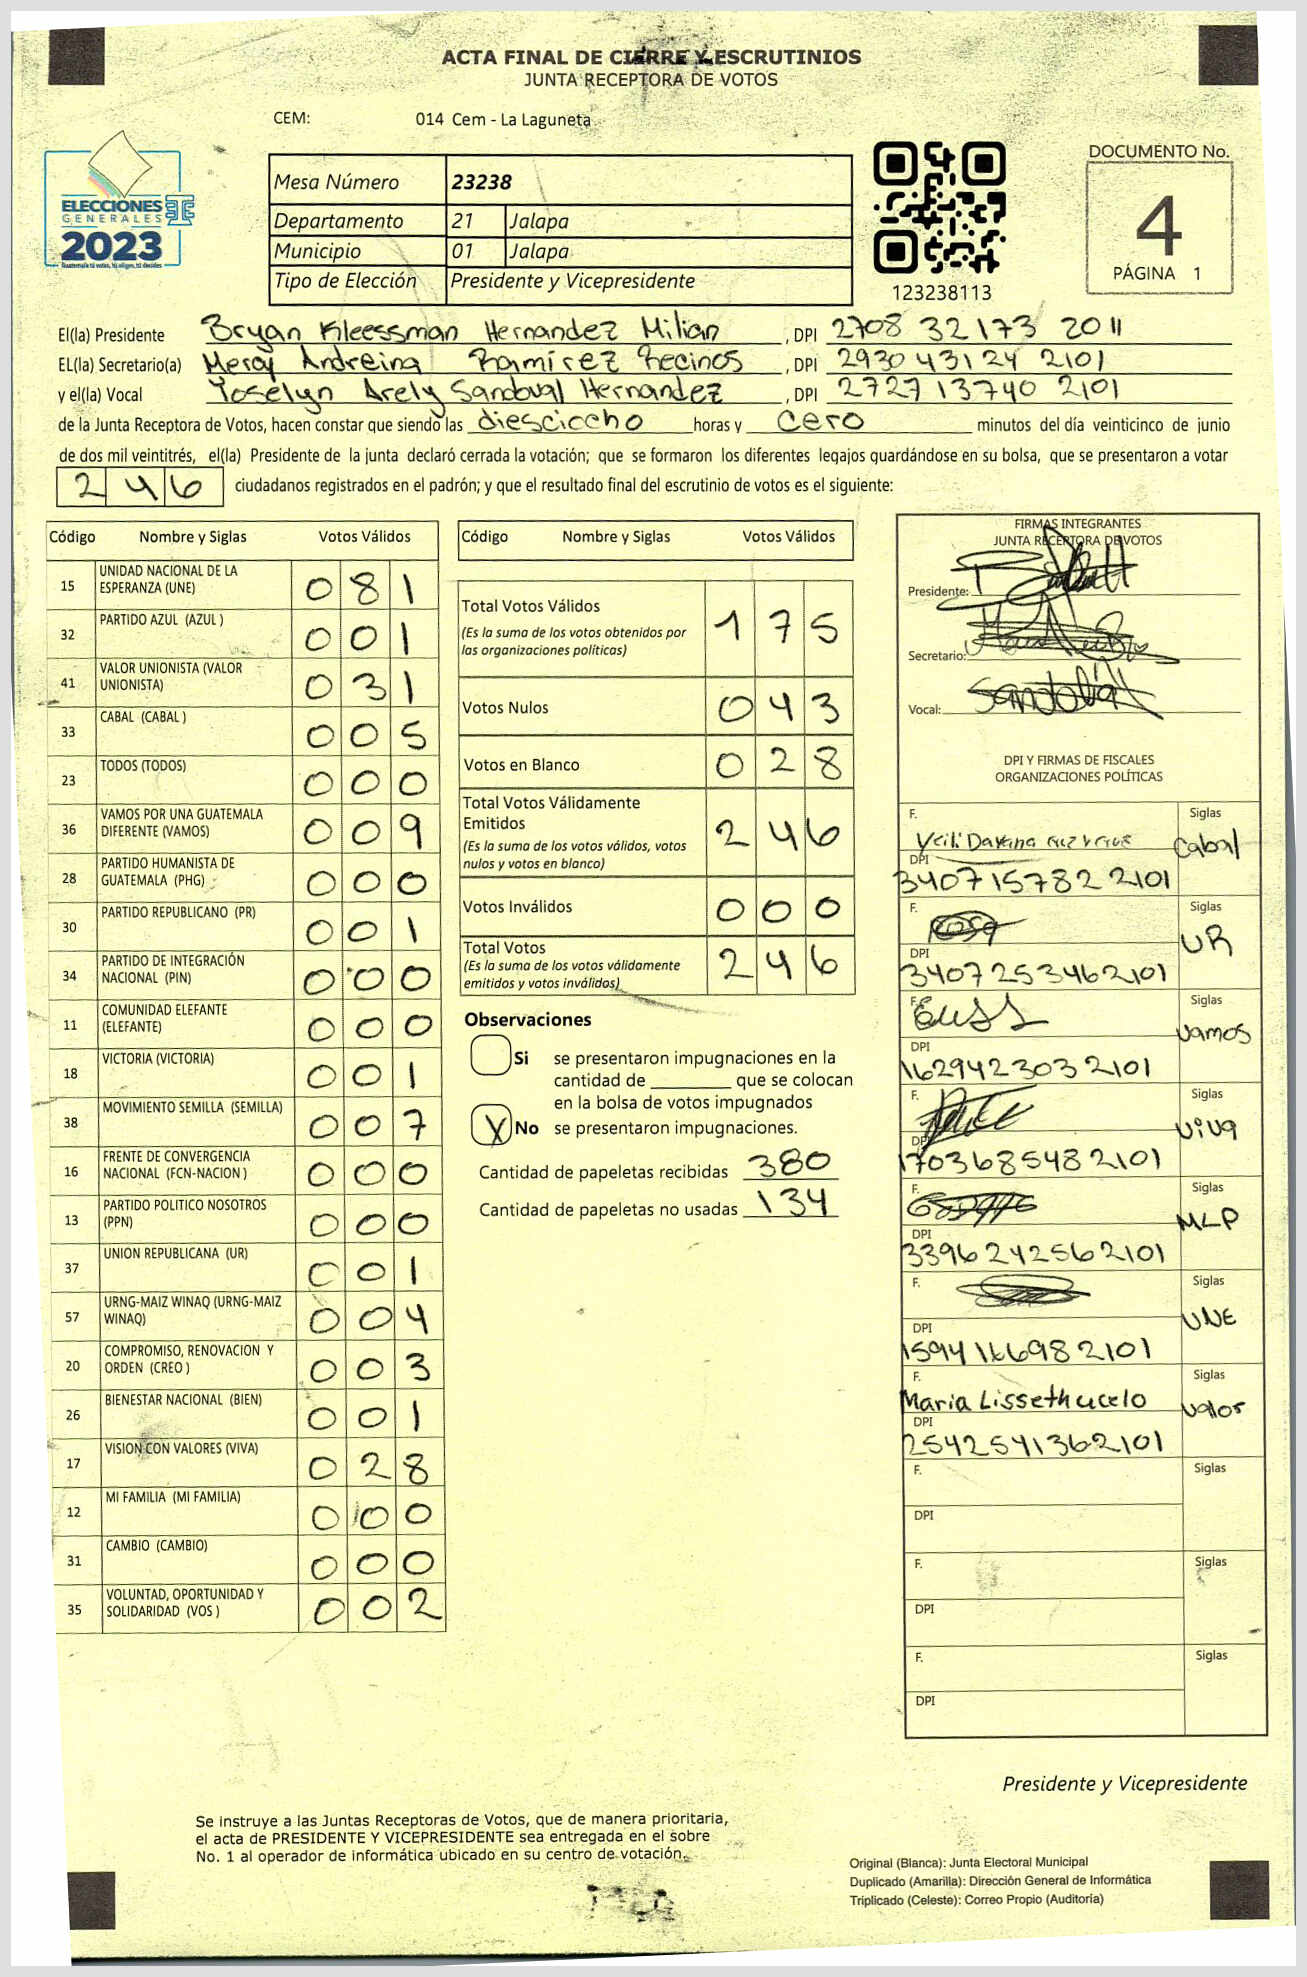 ACTA FINAL DE CIERRE Y ESCRUTINIOS
JUNTA RECEPTORA DE VOTOS
CEM: 014 Cem - La Laguneta
ELECCIONES
GENERALES
2023
Guatemala tú votas, tú eliges, tú decides
Mesa Número 23238
Departamento 21 Jalapa
Municipio 01 Jalapa
Tipo de Elección Presidente y Vicepresidente
123238113
DOCUMENTO No.
4
PÁGINA 1
El(la) Presidente Bryan Kleessman Hernandez Milian , DPI 2708 32173 2011
EL(la) Secretario(a) Mercy Andreina Ramírez Recinos , DPI 2930 43124 2101
y el(la) Vocal Yoselyn Arely Sandoval Hernandez , DPI 2727 13740 2101
de la Junta Receptora de Votos, hacen constar que siendo las diesciocho horas y cero minutos del día veinticinco de junio
de dos mil veintitrés, el(la) Presidente de la junta declaró cerrada la votación; que se formaron los diferentes legajos guardándose en su bolsa, que se presentaron a votar
246 ciudadanos registrados en el padrón; y que el resultado final del escrutinio de votos es el siguiente:
Código Nombre y Siglas Votos Válidos
15 UNIDAD NACIONAL DE LA
ESPERANZA (UNE) 081
32 PARTIDO AZUL (AZUL ) 001
41 VALOR UNIONISTA (VALOR
UNIONISTA) 031
33 CABAL (CABAL ) 005
23 TODOS (TODOS) 000
36 VAMOS POR UNA GUATEMALA
DIFERENTE (VAMOS) 009
28 PARTIDO HUMANISTA DE
GUATEMALA (PHG) 000
30 PARTIDO REPUBLICANO (PR) 001
34 PARTIDO DE INTEGRACIÓN
NACIONAL (PIN) 000
11 COMUNIDAD ELEFANTE
(ELEFANTE) 000
18 VICTORIA (VICTORIA) 001
38 MOVIMIENTO SEMILLA (SEMILLA) 007
16 FRENTE DE CONVERGENCIA
NACIONAL (FCN-NACION ) 000
13 PARTIDO POLITICO NOSOTROS
(PPN) 000
37 UNION REPUBLICANA (UR) 001
57 URNG-MAIZ WINAQ (URNG-MAIZ
WINAQ) 004
20 COMPROMISO, RENOVACION Y
ORDEN (CREO ) 003
26 BIENESTAR NACIONAL (BIEN) 001
17 VISION CON VALORES (VIVA) 028
12 MI FAMILIA (MI FAMILIA) 000
31 CAMBIO (CAMBIO) 000
35 VOLUNTAD, OPORTUNIDAD Y
SOLIDARIDAD (VOS ) 002
Código Nombre y Siglas Votos Válidos
Total Votos Válidos 175
(Es la suma de los votos obtenidos por
las organizaciones políticas)
Votos Nulos 043
Votos en Blanco 028
Total Votos Válidamente
Emitidos 246
(Es la suma de los votos válidos, votos
nulos y votos en blanco)
Votos Inválidos 000
Total Votos 246
(Es la suma de los votos válidamente
emitidos y votos inválidos)
Observaciones
Si se presentaron impugnaciones en la
cantidad de ________ que se colocan
en la bolsa de votos impugnados
X No se presentaron impugnaciones.
Cantidad de papeletas recibidas 380
Cantidad de papeletas no usadas 134
FIRMAS INTEGRANTES
JUNTA RECEPTORA DE VOTOS
Presidente:
Secretario:
Vocal: Sandoval
DPI Y FIRMAS DE FISCALES
ORGANIZACIONES POLÍTICAS
F. Siglas
Dayana Cabal
DPI
3407 15782 2101
F. Siglas
UR
DPI
3407253462101
F. Siglas
Vamos
DPI
1629423032101
F. Siglas
Viva
DPI
1703685482101
F. Siglas
MLP
DPI
3396242562101
F. Siglas
UNE
DPI
1594166982101
F. Siglas
Maria Lisseth ucelo Valor
DPI
2542541362101
F. Siglas
DPI
F. Siglas
DPI
F. Siglas
DPI
Presidente y Vicepresidente
Se instruye a las Juntas Receptoras de Votos, que de manera prioritaria,
el acta de PRESIDENTE Y VICEPRESIDENTE sea entregada en el sobre
No. 1 al operador de informática ubicado en su centro de votación.
Original (Blanca): Junta Electoral Municipal
Duplicado (Amarilla): Dirección General de Informática
Triplicado (Celeste): Correo Propio (Auditoría)